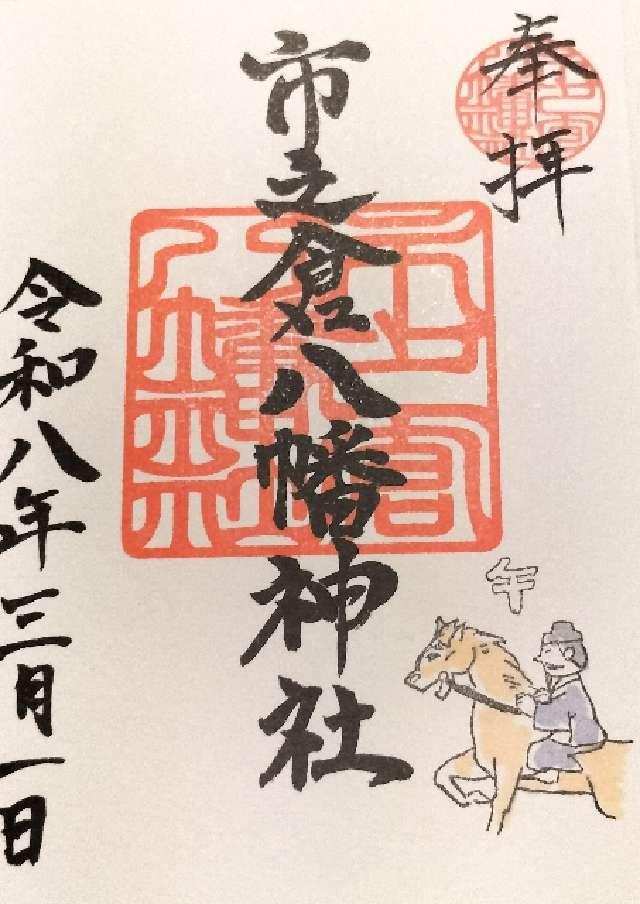 奉拝
市之倉八幡神社
午
令和八年三月一日